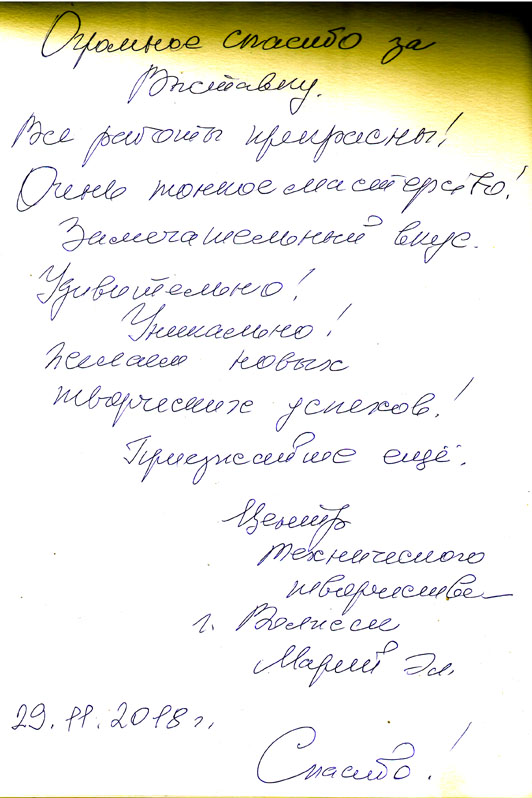 Огромное спасибо за
Выставку.
Все работы прекрасны!
Очень тонкое мастерство!
Замечательный вкус.
Удивительно!
Уникально!
Желаем новых
творческих успехов!
Приезжайте ещё.
Центр
технического
творчества
г. Волжск
Марий Эл.
29.11.2018 г.
Спасибо!